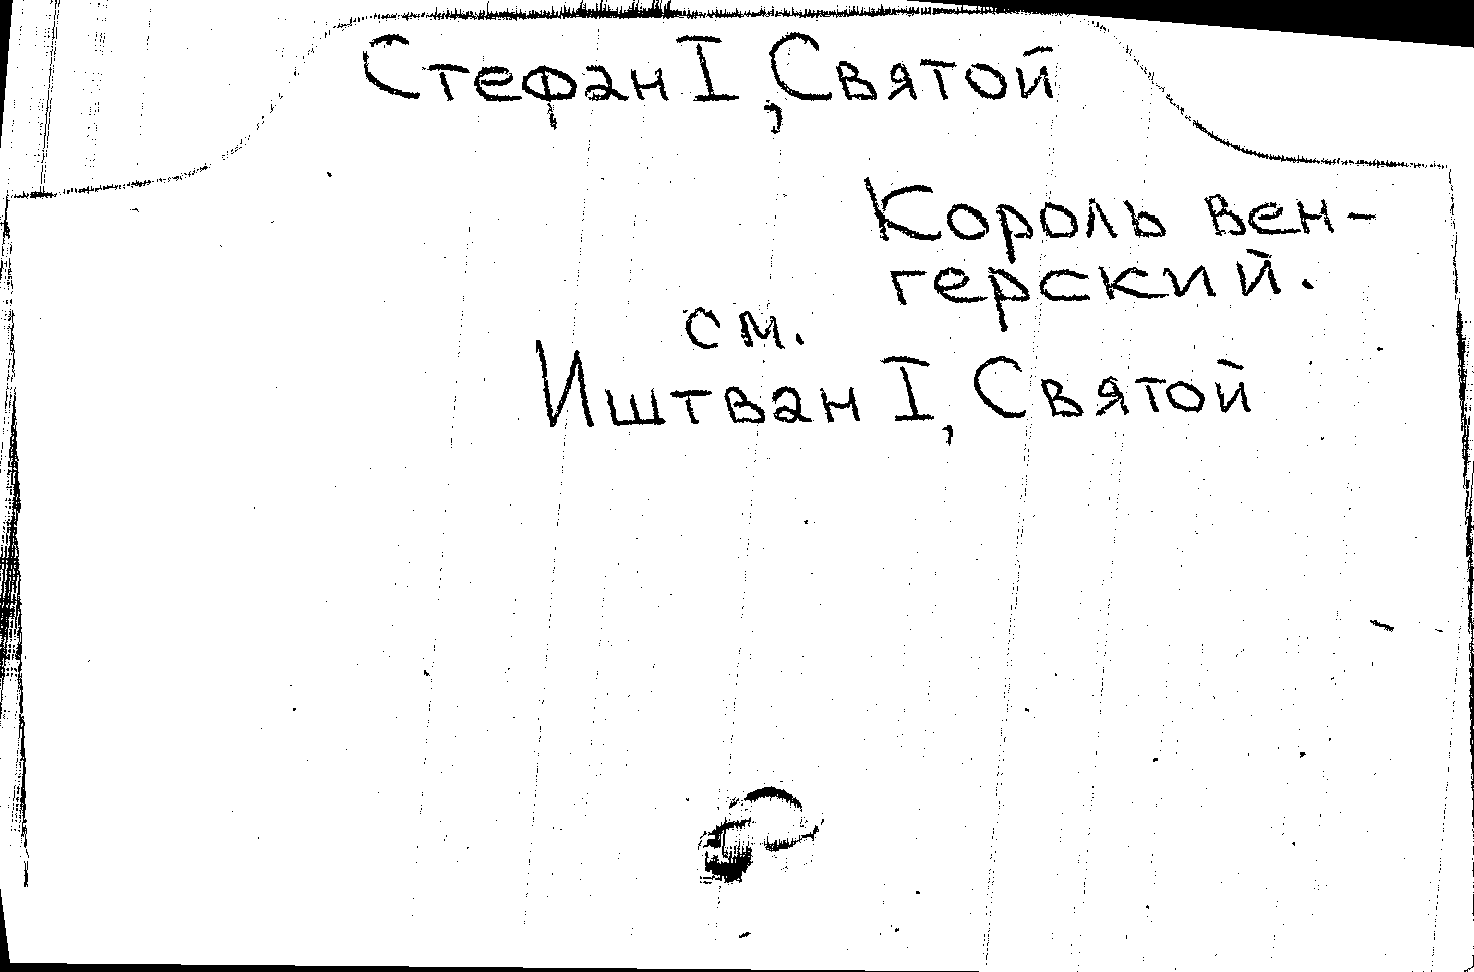 Стефан I, Святой
Король вен-
герский.
см.
Иштван I, Святой